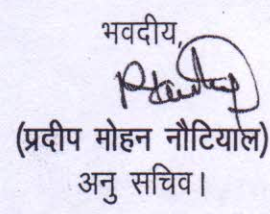 भवदीय,
(प्रदीप मोहन नौटियाल)
अनु सचिव।